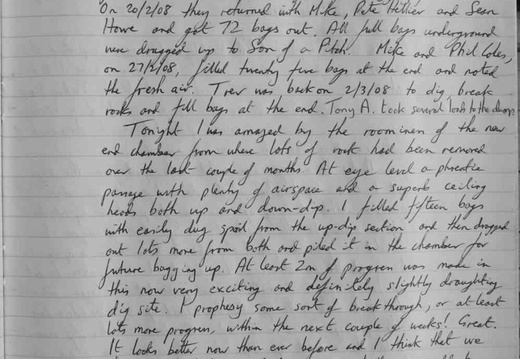 On 20/2/08 they returned with Mike, Pete Hither and Sean
Howe and got 72 bags out. All full bags underground
were dragged up to Son of a Pitch. Mike and Phil Coles,
on 27/2/08, filled twenty five bags at the end and noted
the fresh air. Trev was back on 2/3/08 to dig, break
rocks and fill bags at the end. Tony A. took several loads to the dump.
Tonight I was amazed by the roominess of the new
end chamber from where lots of rock had been removed
over the last couple of months. At eye level a phreatic
passage with plenty of airspace and a superb ceiling
heads both up and down-dip. I filled fifteen bags
with easily dug spoil from the up-dip section and then dragged
out lots more from both and piled it in the chamber for
future bagging up. At least 2m of progress was made in
this now very exciting and definitely slightly draughting
dig site. I prophesy some sort of breakthrough, or at least
lots more progress, within the next couple of weeks! Great.
It looks better now than ever before and I think that we